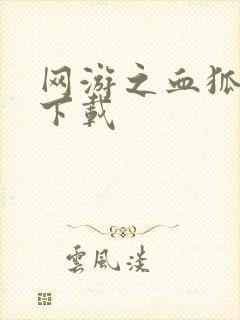 网游之血狐
下载
雲風淡